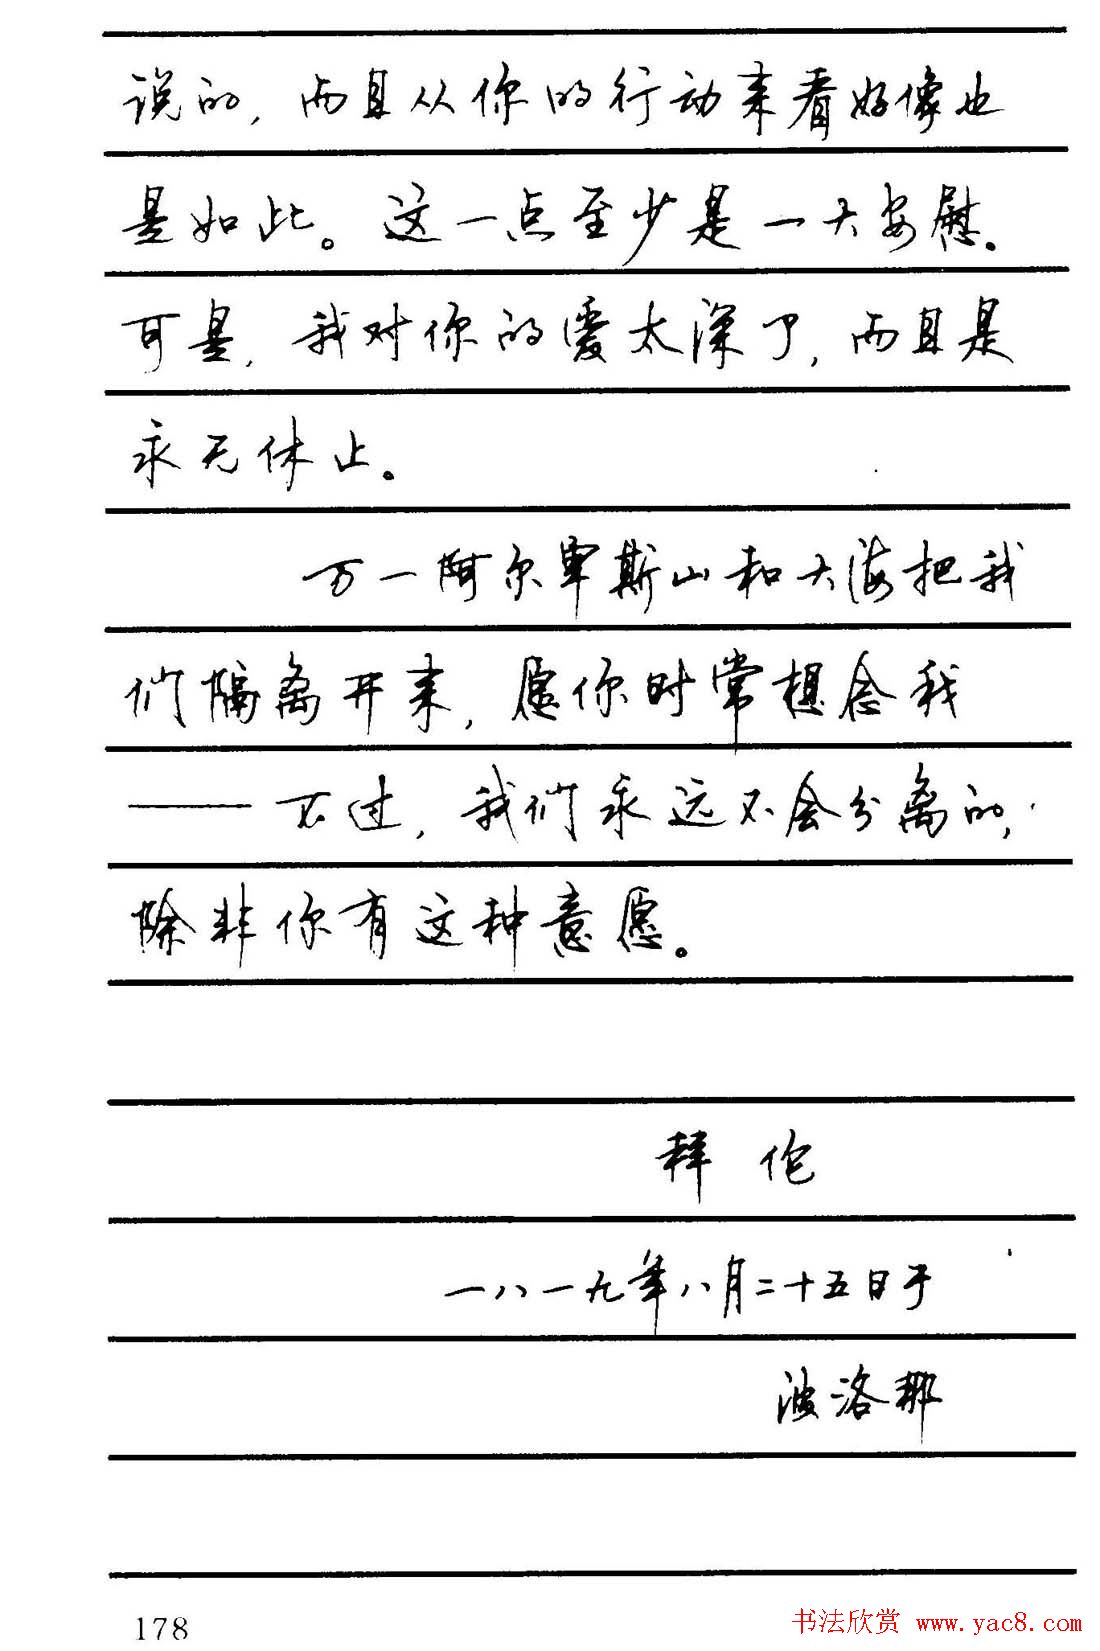 说的，而且从你的行动来看好像也
是如此。这一点至少是一大安慰。
可是，我对你的爱太深了，而且是
永无休止。
万一阿尔卑斯山和大海把我
们隔离开来，愿你时常想念我
——不过，我们永远不会分离的，
除非你有这种意愿。
拜伦
一八一九年八月二十五日于
波洛那
178
书法欣赏 www.yac8.com